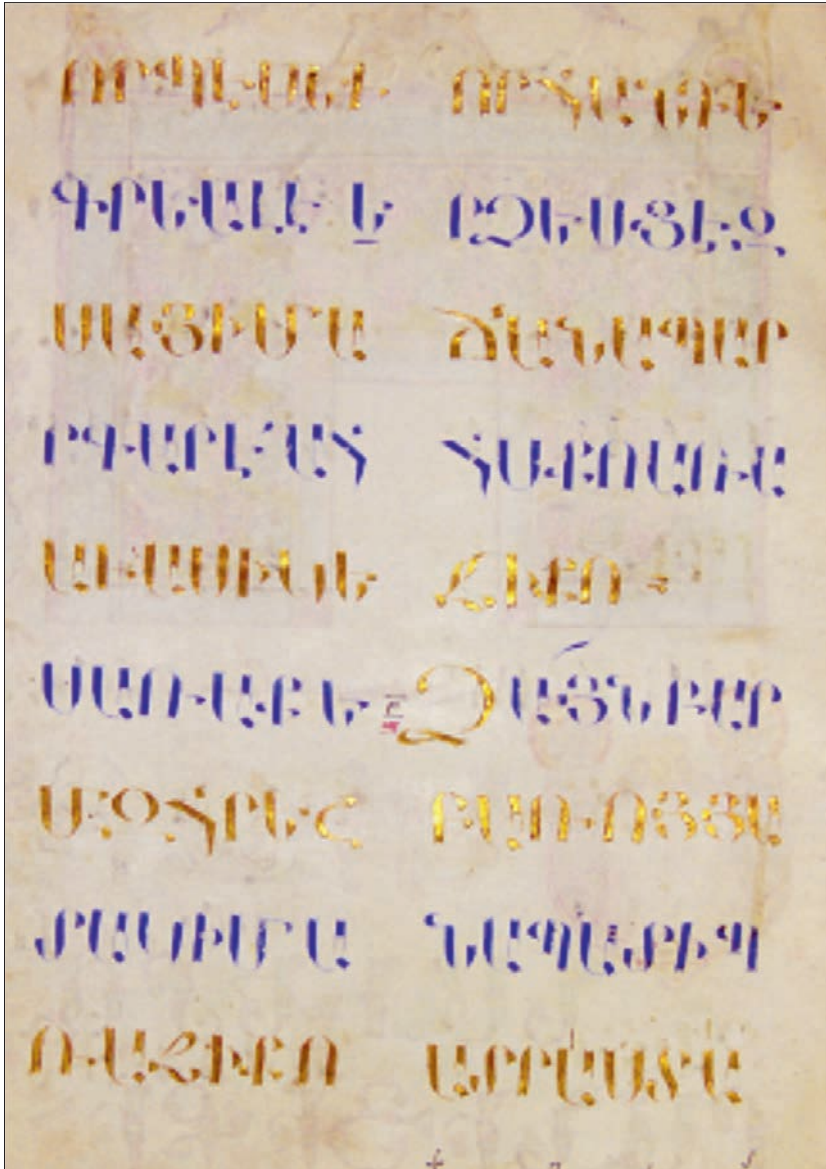 ՈՐՊԷՍ ԵՒ
ԳՐԵԱԼ Է Ե
ՍԱՅԻ ՄԱ
ՐԳԱՐԷ ԱՀ
ԱՒԱՍԻԿ Ե
Ս ԱՌԱՔԵ
Մ ԶՀՐԵՇ
ՏԱԿ ԻՄ Ա
ՌԱՋԻ ՔՈ
ՈՐ ՀԱՆԴԵ
ՐՁԵՍՑԷ Զ
ՃԱՆԱՊԱՐ
ՀՍ ՔՈ ԱՌԱ
ՋԻ ՔՈ :
ՁԱՅՆ ԲԱՐ
ԲԱՌՈՅ ՅԱ
ՆԱՊԱՏԻ Պ
ԱՏՐԱՍՏ Ա